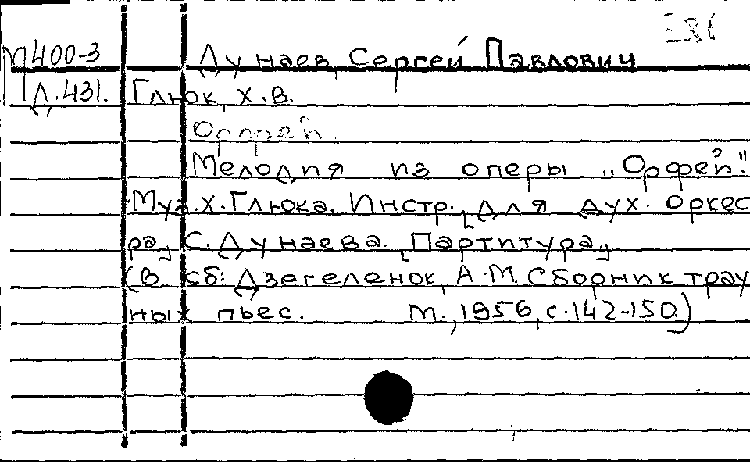 М400-3 Дунаев, Сергей Павлович
Д.431. Глюк, Х.В.
Орфей.
Мелодия из оперы „Орфей".
Муз. Х. Глюка. Инстр. [для дух. оркес
ра] С. Дунаева. [Партитура]
(В сб: Дзегеленок, А.М. Сборник трау
ных пьес. М., 1956, с. 142-150.)